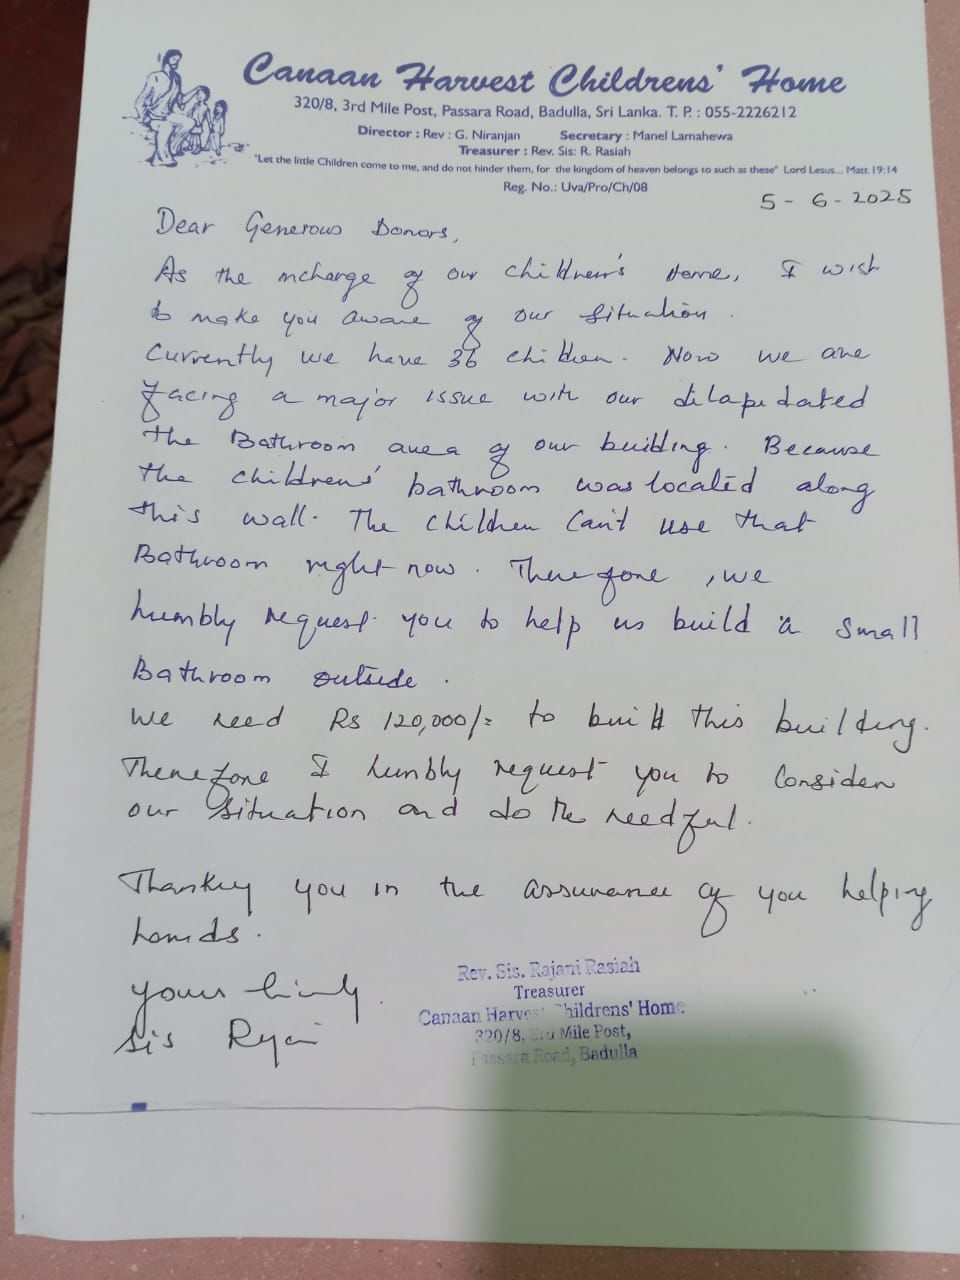 Canaan Harvest Childrens' Home
320/8, 3rd Mile Post, Passara Road, Badulla, Sri Lanka. T. P. : 055-2226212
Director : Rev : G. Niranjan Secretary : Manel Lamahewa
Treasurer : Rev. Sis: R. Rasiah
"Let the little Children come to me, and do not hinder them, for the kingdom of heaven belongs to such as these" Lord Lesus... Matt. 19:14
Reg. No.: Uva/Pro/Ch/08
5 - 6 - 2025
Dear Generous Donors,
As the incharge of our children's Home, I wish
to make you aware of our situation.
Currently we have 36 children. Now we are
facing a major issue with our dilapidated
the Bathroom area of our building. Because
the childrens' bathroom was located along
this wall. The children Can't use that
Bathroom right now. Therefore, we
humbly request you to help us build a small
Bathroom outside.
We need Rs 120,000/= to build this building.
Therefore I humbly request you to Consider
our situation and do the needful.
Thanking you in the assurance of you helping
hands.
yours
Sis
Rev. Sis. Rajani Rasiah
Treasurer
Canaan Harvest Childrens' Home
320/8, 3rd Mile Post,
Passara Road, Badulla